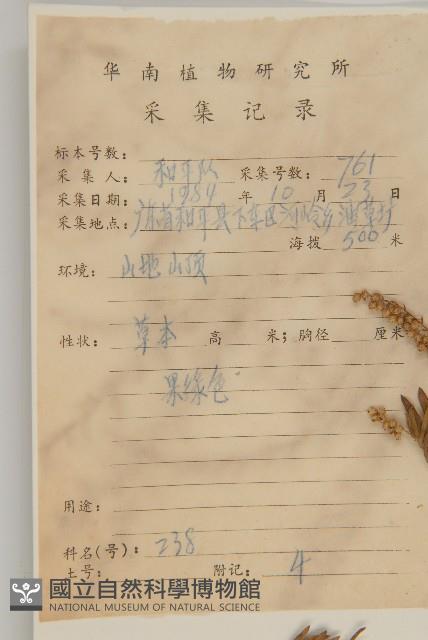 华南植物研究所
采集记录
标本号数：
采集人： 和平队 采集号数： 761
采集日期： 1984 年 10 月 23 日
采集地点： 广东省和平县下车区河岭乡油草
海拨 500 米
环境： 山地 山顶
性状： 草本 高 米；胸径 厘米
果绿色
用途：
科名(号)： 238
土号： 附记： 4
國立自然科學博物館
NATIONAL MUSEUM OF NATURAL SCIENCE